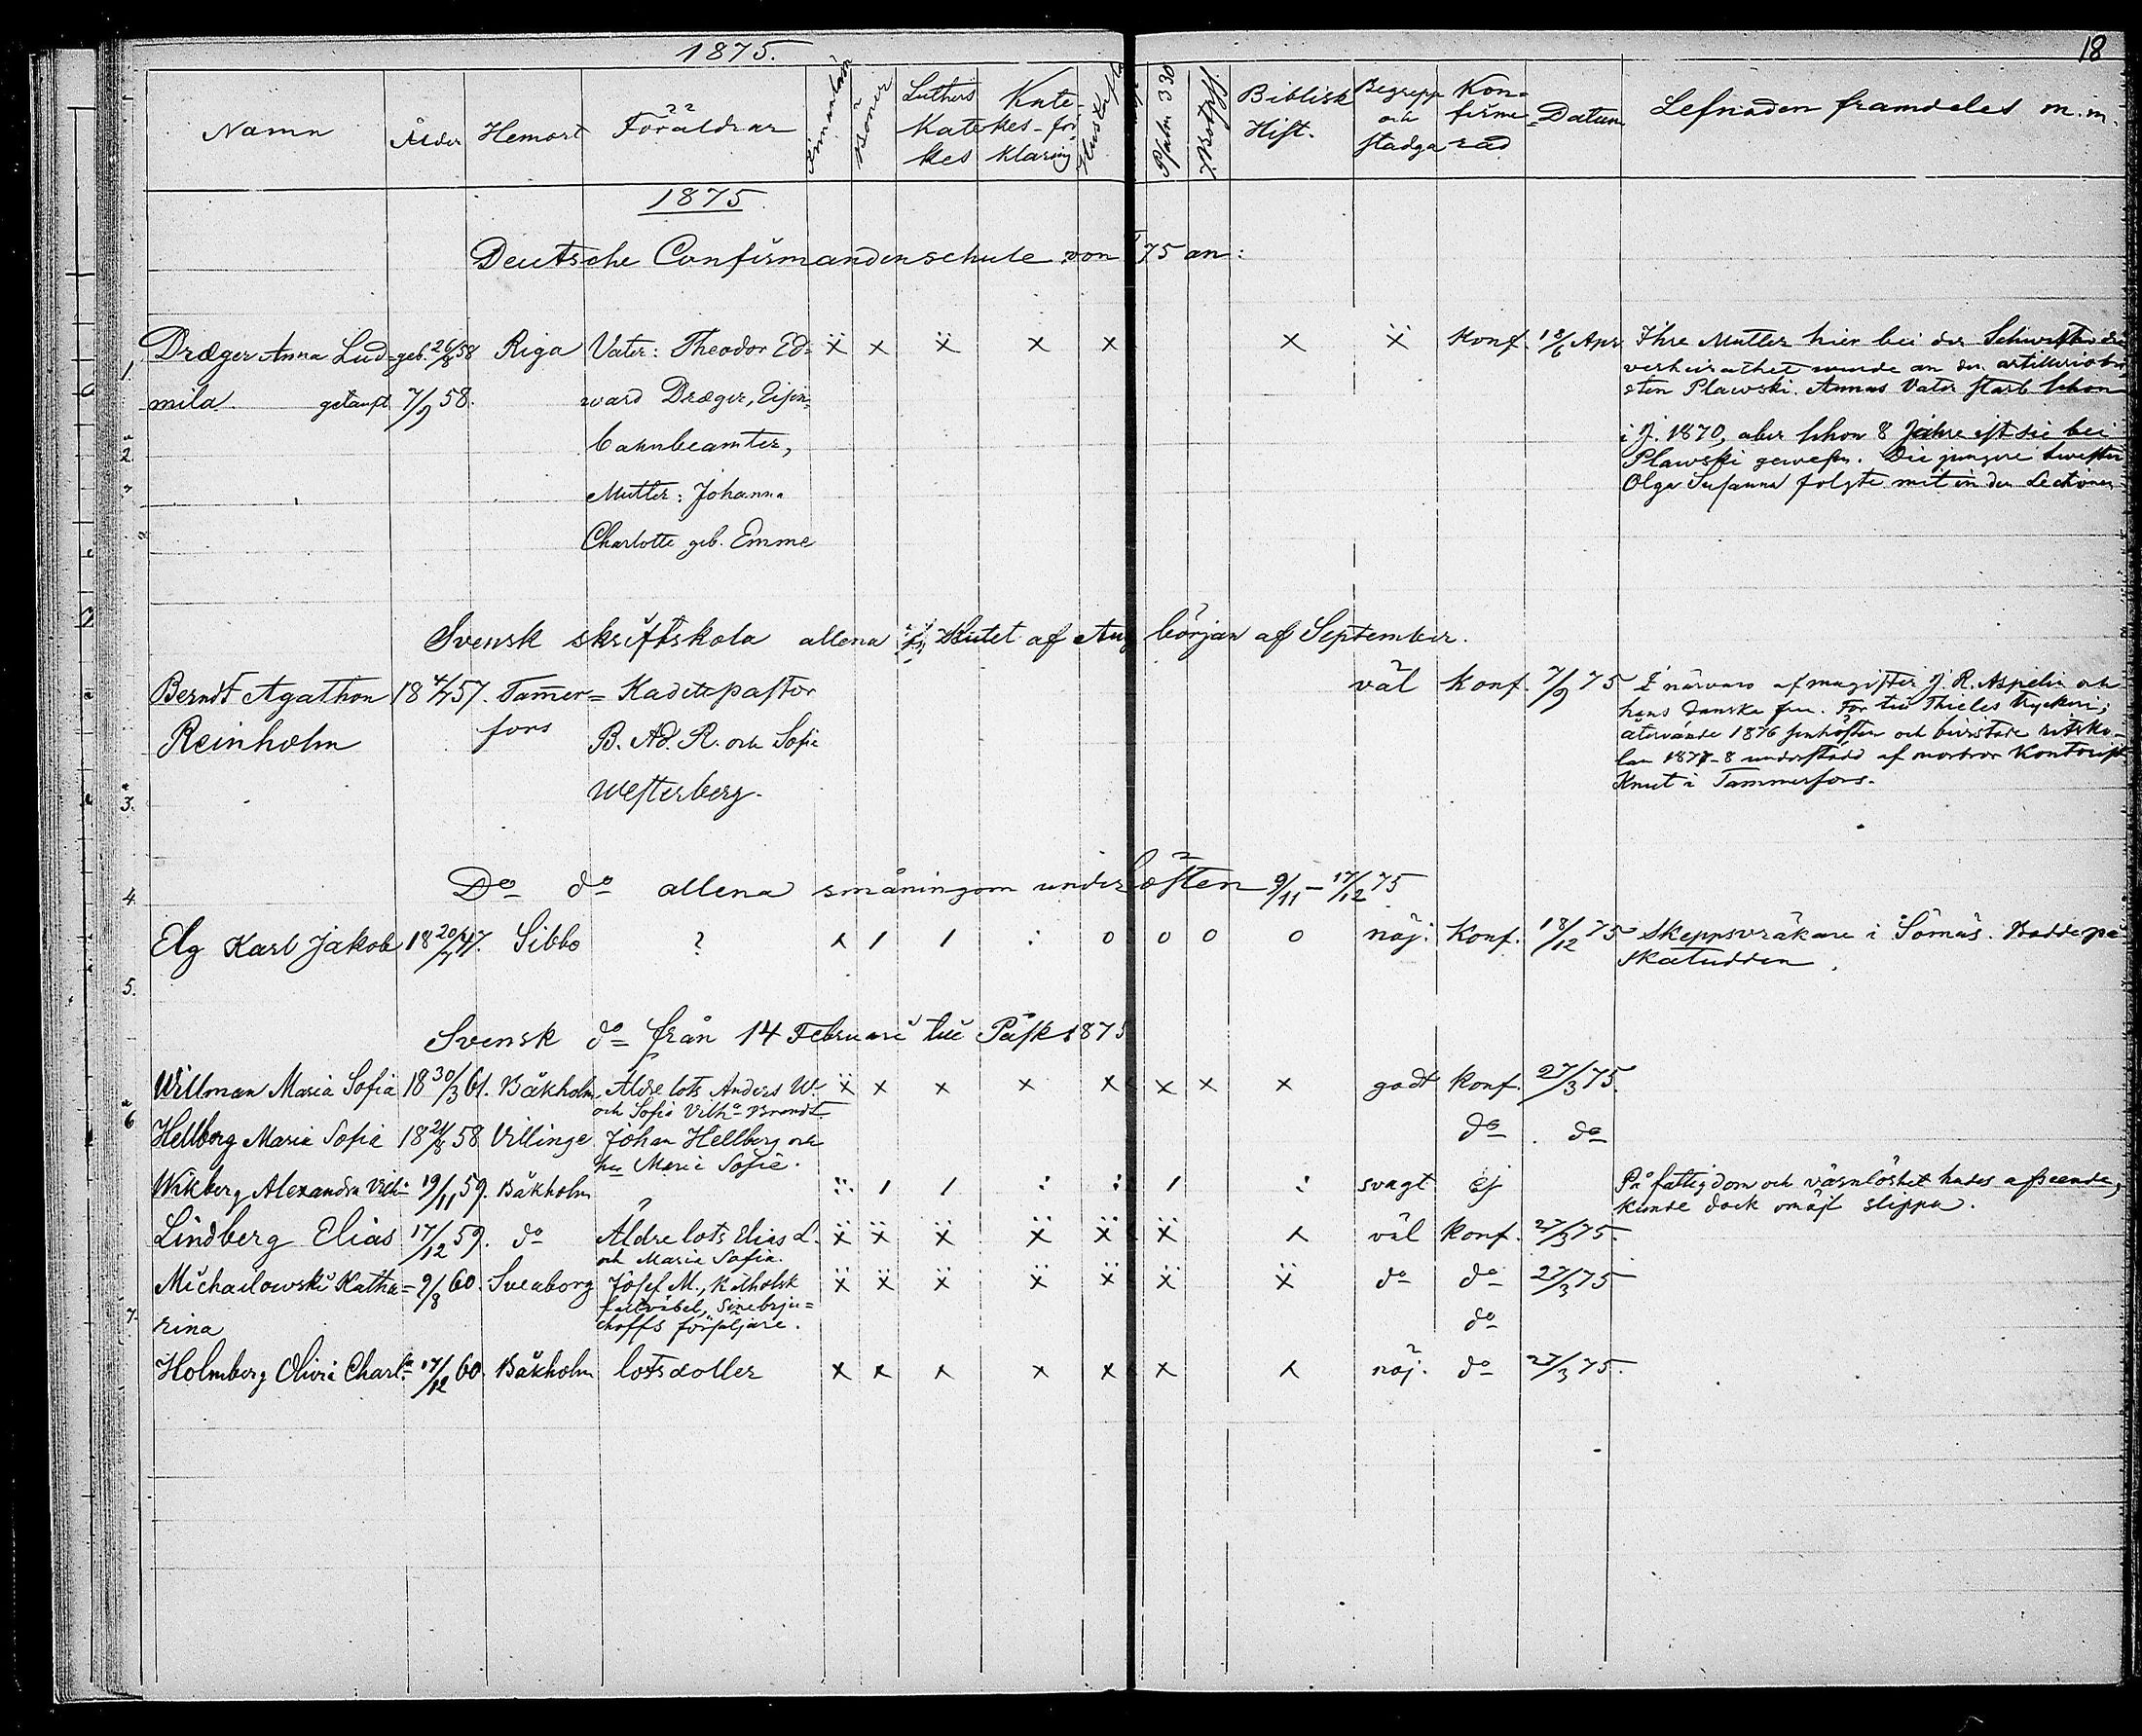 1875.
18
Namn Ålder Hemort Föräldrar Innanläsn Böner Luthers Katekes Kate-kes-förklaring Hustafla Psalm 330 7. Botps. Biblisk Hist. Begrepp och stadga Konfirmerad Datum Lefnaden framdeles m.m.
1875
Deutsche Confirmandenschule von 75 an:
Dræger Anna Lud= geb. 26/8 58 Riga Vater: Theodor Ed= ẍ x ẍ x x x ẍ Konf. Apr Ihre Mutter hier bei der Schwester die
verheirathet wurde an den artilleriobr
mila getauft 7/9 58. ward Dræger, Eisen= sten Plawski. Annas Vater starb schon
bahnbeamter, i J. 1870, aber schon 8 Jahre ist sie bei
Plawski gewesen. Die jüngere Swester
Mutter: Johanna Olga Susanna folgte mit in den Lectionen.
Charlotte geb. Emme
Svensk skriftskola allena i slutet af Aug början af September.
Berndt Agathon 18 4/7 57. Tam̄er= Kadettpastor väl Konf. 7/9 75 I närvaro af magister J. R. Aspelin och
hans danska fru. For till Thieles tryckeri;
Reinholm fors B. Ad. R. och Sofie återvände 1876 senhösten och bivistade ritsko-
lan 1877-8 understödd af morbror Kontorist
Westerberg. Knut i Tammerfors.
Do do allena småningom under hösten 9/11 - 17/12 75
Elg Karl Jakob 18 20/7 47. Sibbo ? x / / : o o o o nöj. Konf. 18/12 75 Skeppsvräkare i Sörnäs. Bodde på
Skatudden.
Svensk do från 14 Februari till Påsk 1875
Willman Maria Sofia 18 30/3 61. Båkholm Äldre lots Anders W. ẍ x x x x x x x godt konf. 27/3 75.
och Sofia Vilha Brandt
Hellberg Maria Sofia 18 21/8 58 Villinge Johan Hellberg och do do
hu Maria Sofia.
Wikberg Alexandra Vilh. 19/11 59. Båkholm ? :: / / : : / : svagt ej På fattigdom och värnlöshet hades afseende,
kunde dock omöjl slippa.
Lindberg Elias 17/12 59. do Äldre lots Elias L. ẍ ẍ ẍ ẍ ẍ ẍ x väl konf. 27/3 75.
och Maria Sofia.
Michailowski Katha= 9/8 60. Sveaborg Josef M., katholsk ẍ ẍ ẍ ẍ ẍ ẍ ẍ do do 27/3 75
fältväbel, Sinebrju=
rina choffs försäljare. do
Holmberg Olivia Charl. 17/12 60. Båkholm lotsdotter x x x x x x x nöj. do 27/3 75.